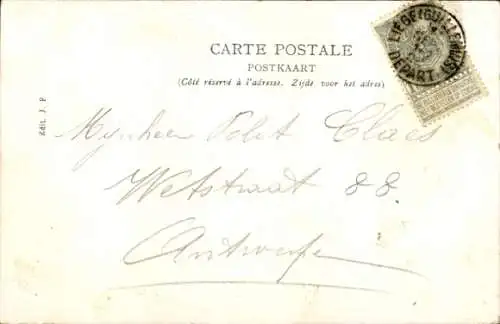 CARTE POSTALE
POSTKAART
(Côté réservé à l'adresse. Zijde voor het adres)
LIEGE (GUILLEMINS)
DEPART
Edit. J. F
Mynheer Polet Claes
Wetstraat 88
Antwerpen